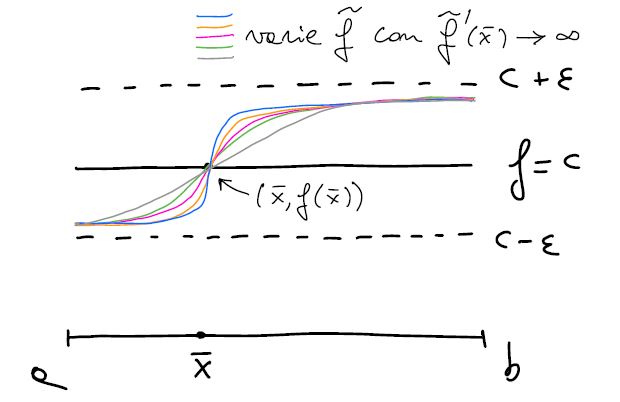 varie f̃ con f̃'(x̄) → ∞
c + ε
f = c
(x̄, f(x̄))
c - ε
a x̄ b